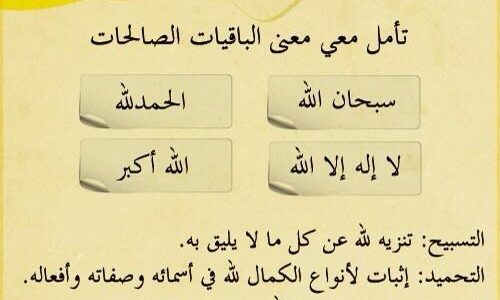 تأمل معي معنى الباقيات الصالحات
سبحان الله الحمدلله
لا إله إلا الله الله أكبر
التسبيح: تنزيه لله عن كل ما لا يليق به.
التحميد: إثبات لأنواع الكمال لله في أسمائه وصفاته وأفعاله.